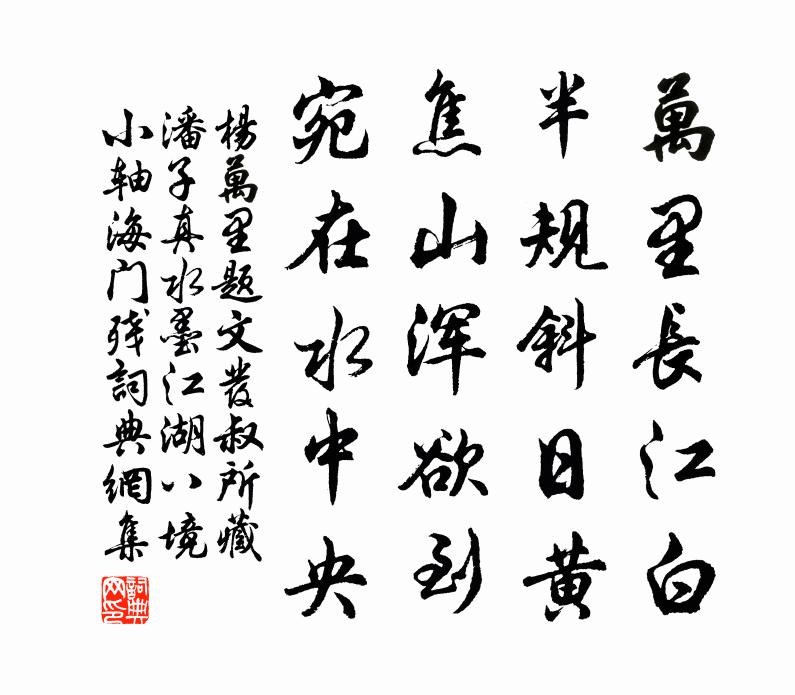 萬里長江白
半規斜日黄
焦山浑欲到
宛在水中央
楊萬里題文發叔所藏
潘子真水墨江湖八境
小轴海门残詞典網集
詞典網印